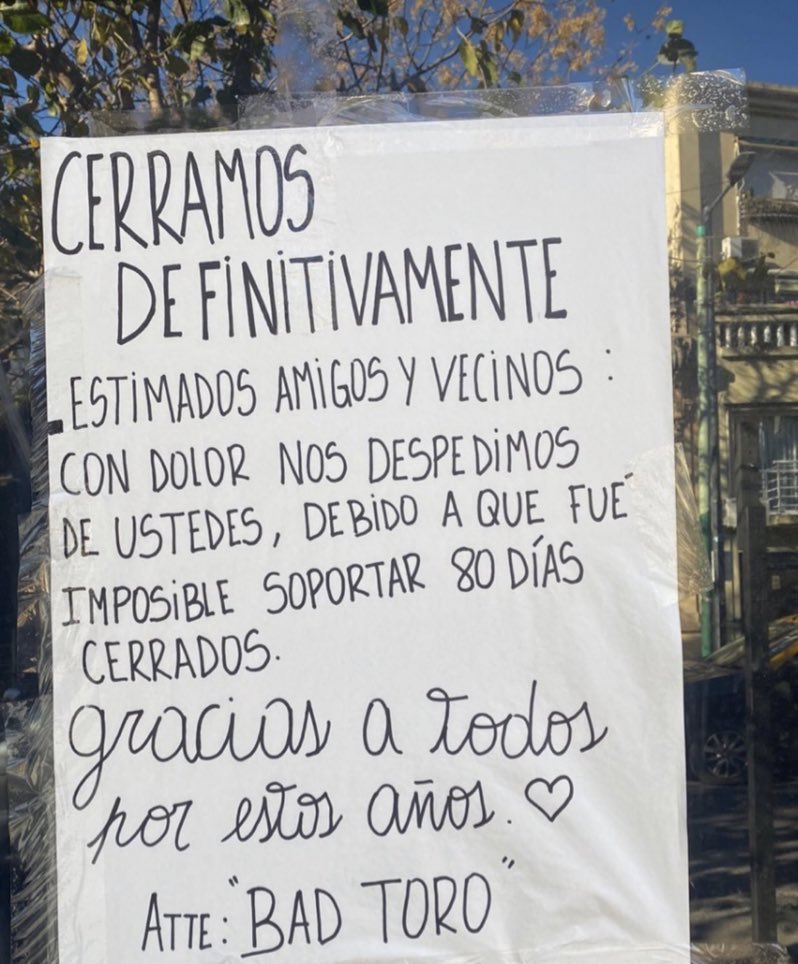 CERRAMOS
DEFINITIVAMENTE
ESTIMADOS AMIGOS Y VECINOS :
CON DOLOR NOS DESPEDIMOS
DE USTEDES, DEBIDO A QUE FUE
IMPOSIBLE SOPORTAR 80 DÍAS
CERRADOS.
gracias a todos
por estos años. ♡
ATTE: "BAD TORO"